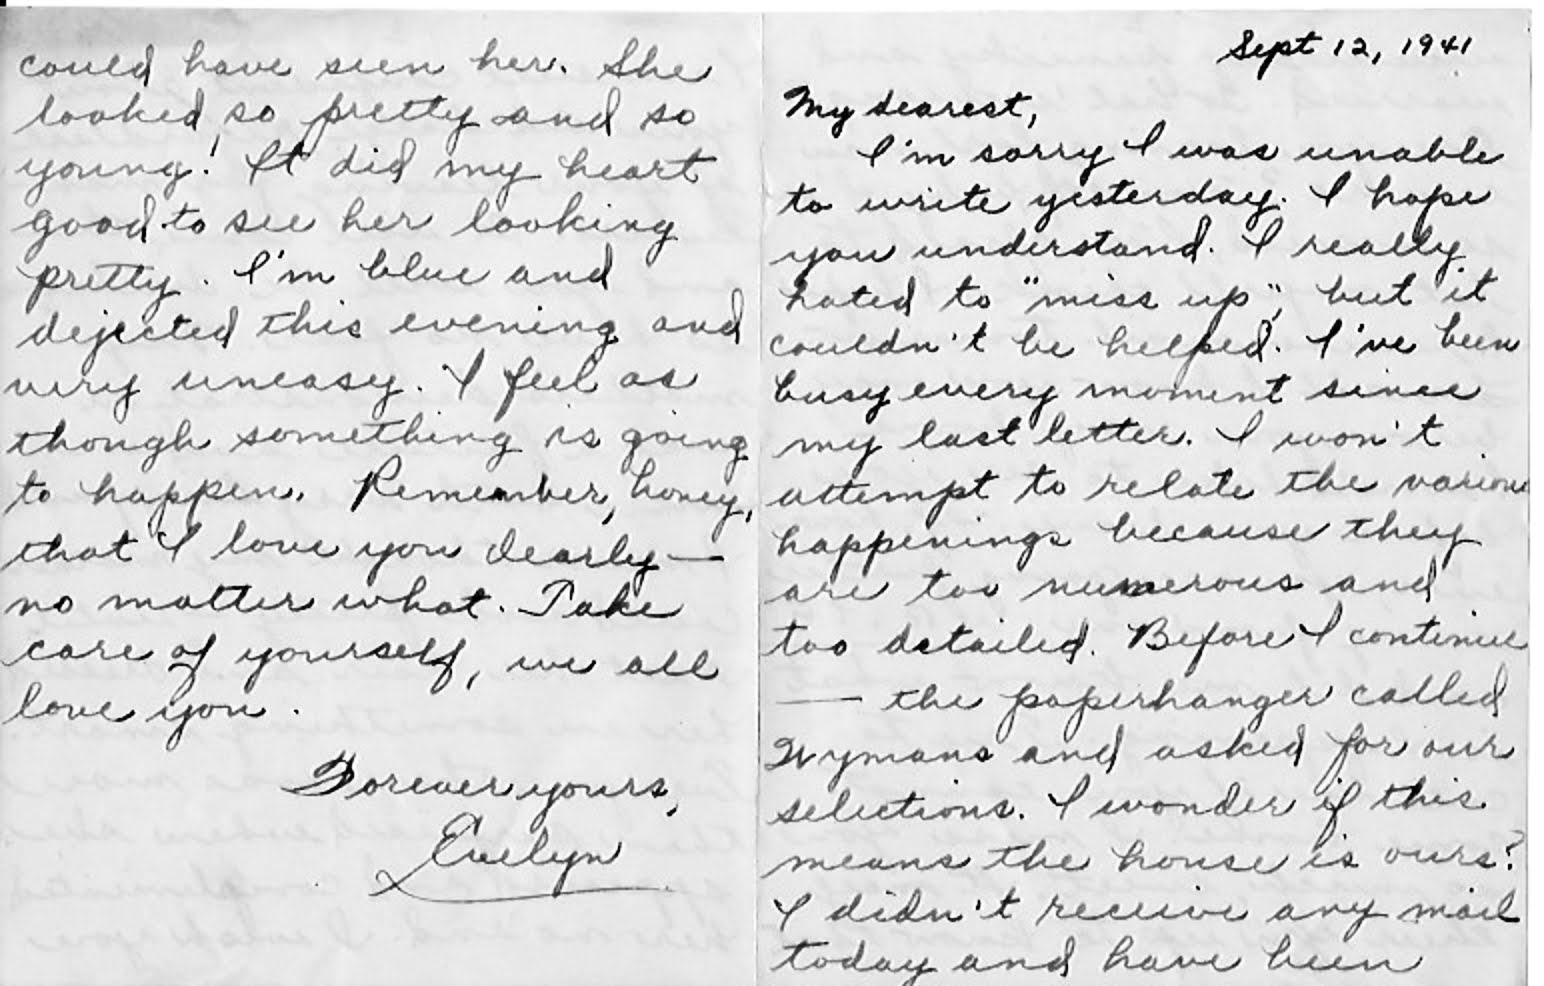 Sept 12, 1941
My dearest,
I'm sorry I was unable
to write yesterday. I hope
you understand. I really
hated to "miss up", but it
couldn't be helped. I've been
busy every moment since
my last letter. I won't
attempt to relate the various
happenings because they
are too numerous and
too detailed. Before I continue
— the paperhanger called
Wymans and asked for our
selections. I wonder if this
means the house is ours?
I didn't receive any mail
today and have been
could have seen her. She
looked so pretty and so
young! It did my heart
good to see her looking
pretty. I'm blue and
dejected this evening and
very uneasy. I feel as
though something is going
to happen. Remember, honey,
that I love you dearly—
no matter what. Take
care of yourself, we all
love you.
Forever yours,
Evelyn